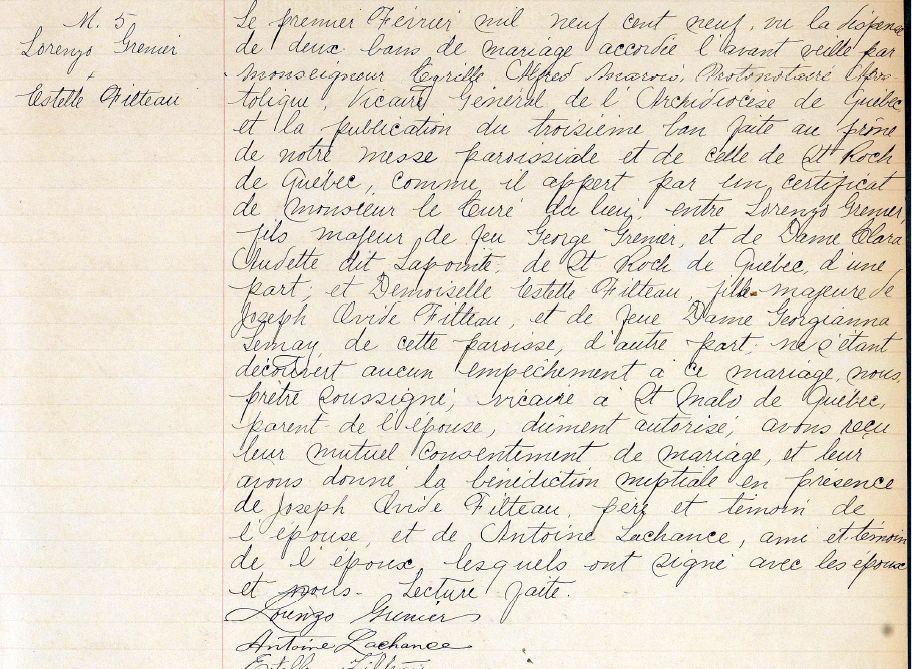 M. 5
Lorenzo Grenier
&
Estelle Filteau
Le premier Février mil neuf cent neuf, vu la dispense
de deux bans de mariage accordée l'avant veille par
Monseigneur Cyrille Alfred Marois, Protonotaire Apos-
tolique, Vicaire Général de l'Archidiocèse de Québec,
et la publication du troisième ban faite au prône
de notre messe paroissiale et de celle de St Roch
de Québec, comme il appert par un certificat
de Monsieur le Curé du lieu, entre Lorenzo Grenier,
fils majeur de feu George Grenier, et de Dame Clara
Audette dit Lapointe, de St Roch de Québec, d'une
part; et Demoiselle Estelle Filteau, fille majeure de
Joseph Ovide Filteau, et de feue Dame Georgianna
Lemay, de cette paroisse, d'autre part; ne s'étant
découvert aucun empêchement à ce mariage, nous,
prêtre soussigné, vicaire à St Malo de Québec,
parent de l'épouse, dûment autorisé, avons reçu
leur mutuel consentement de mariage, et leur
avons donné la bénédiction nuptiale en présence
de Joseph Ovide Filteau, père et témoin de
l'épouse, et de Antoine Lachance, ami et témoin
de l'époux, lesquels ont signé avec les époux
et nous. Lecture faite.
Lorenzo Grenier
Antoine Lachance
Estelle Filteau